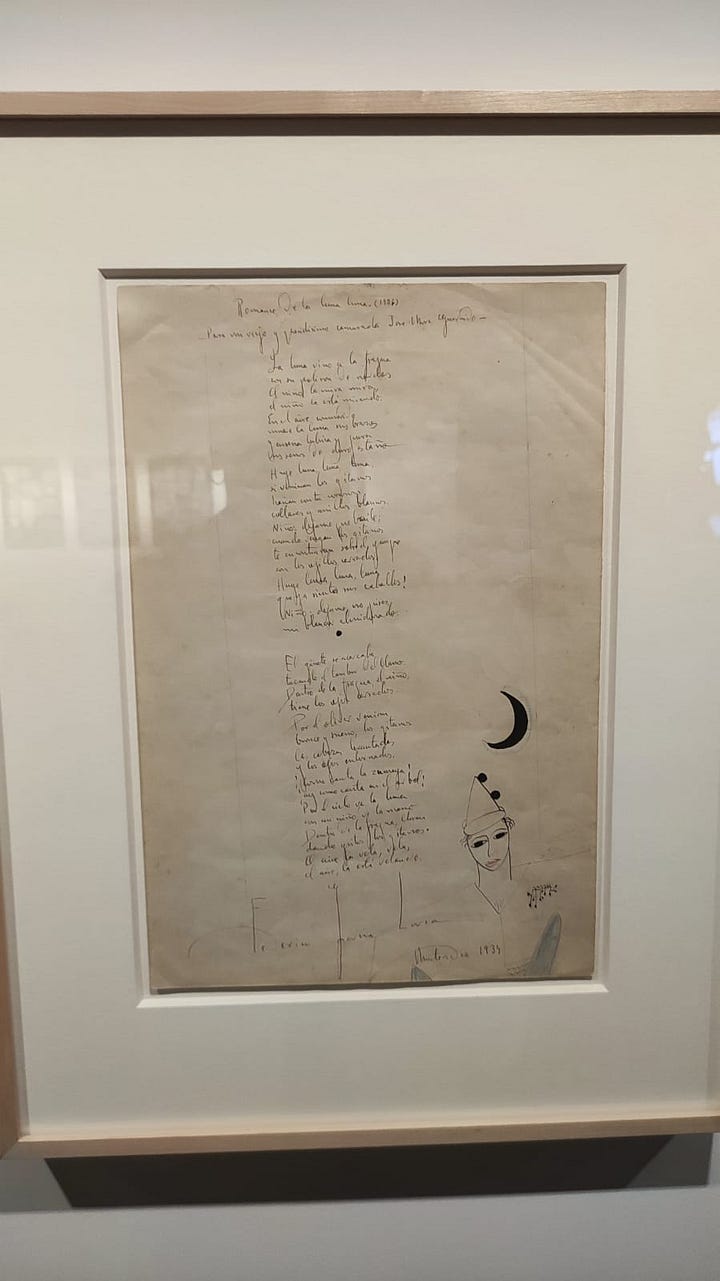 Romance de la luna luna. (1926)
— Para mi viejo y grandísimo camarada Jose Mora Guarnido —
La luna vino a la fragua
con su polison de nardos
el niño la mira mira,
el niño la está mirando.
En el aire conmovido
mueve la luna sus brazos
y enseña lubrica y pura
sus senos de duro estaño
Huye luna, luna, luna,
si vinieran los gitanos
harian con tu corazon
collares y anillos blancos.
Niño, dejame que baile;
cuando vengan los gitanos
te encontraran sobre el yunque
con los ojillos cerrados
Huye luna, luna, luna
que ya siento sus caballos!
Niño, dejame, no pises,
mi blancor almidonado.
El jinete se acercaba
tocando el tambor del llano
Dentro de la fragua el niño,
tiene los ojos cerrados
Por el olivar venian
bronce y sueño, los gitanos
las cabezas levantadas
y los ojos entornados.
¡Como canta la zumaya!
¡ay como canta en el arbol!
Por el cielo va la luna
con un niño de la mano
Dentro de la fragua, lloran
dando gritos, los gitanos.
El aire la vela, vela,
el aire la está velando.
Federico García Lorca
Montevideo 1934